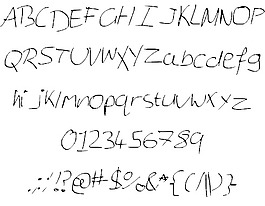 ABCDEFGHIJKLMNOP
QRSTUVWXYZabcdefg
hijklmnopqrstuvwxyz
0123456789
.,:;'!?@#$%&*{(/|\)}